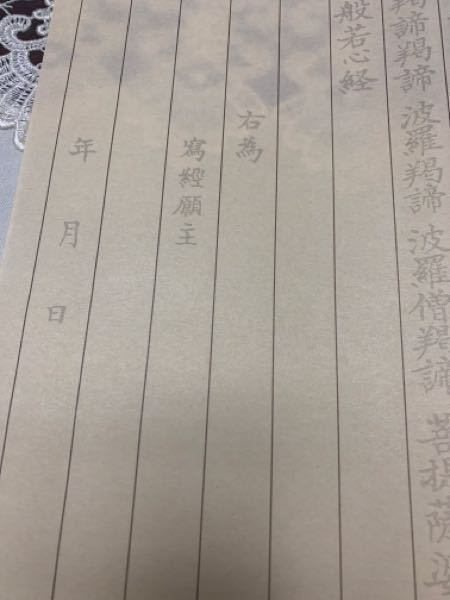 羯諦羯諦 波羅羯諦 波羅僧羯諦 菩提薩婆
般若心経
右為
寫經願主
年 月 日